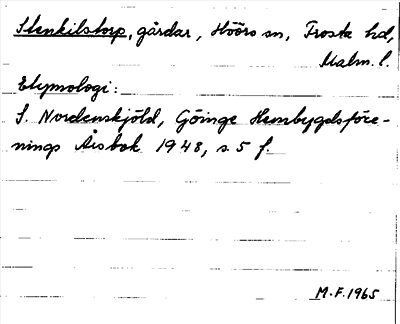 Stenkilstorp, gårdar, Höörs sn, Frosta hd,
Malm. l.
Etymologi:
S. Nordenskjöld, Göinge Hembygdsföre-
nings Årsbok 1948, s. 5 f.
M.F. 1965